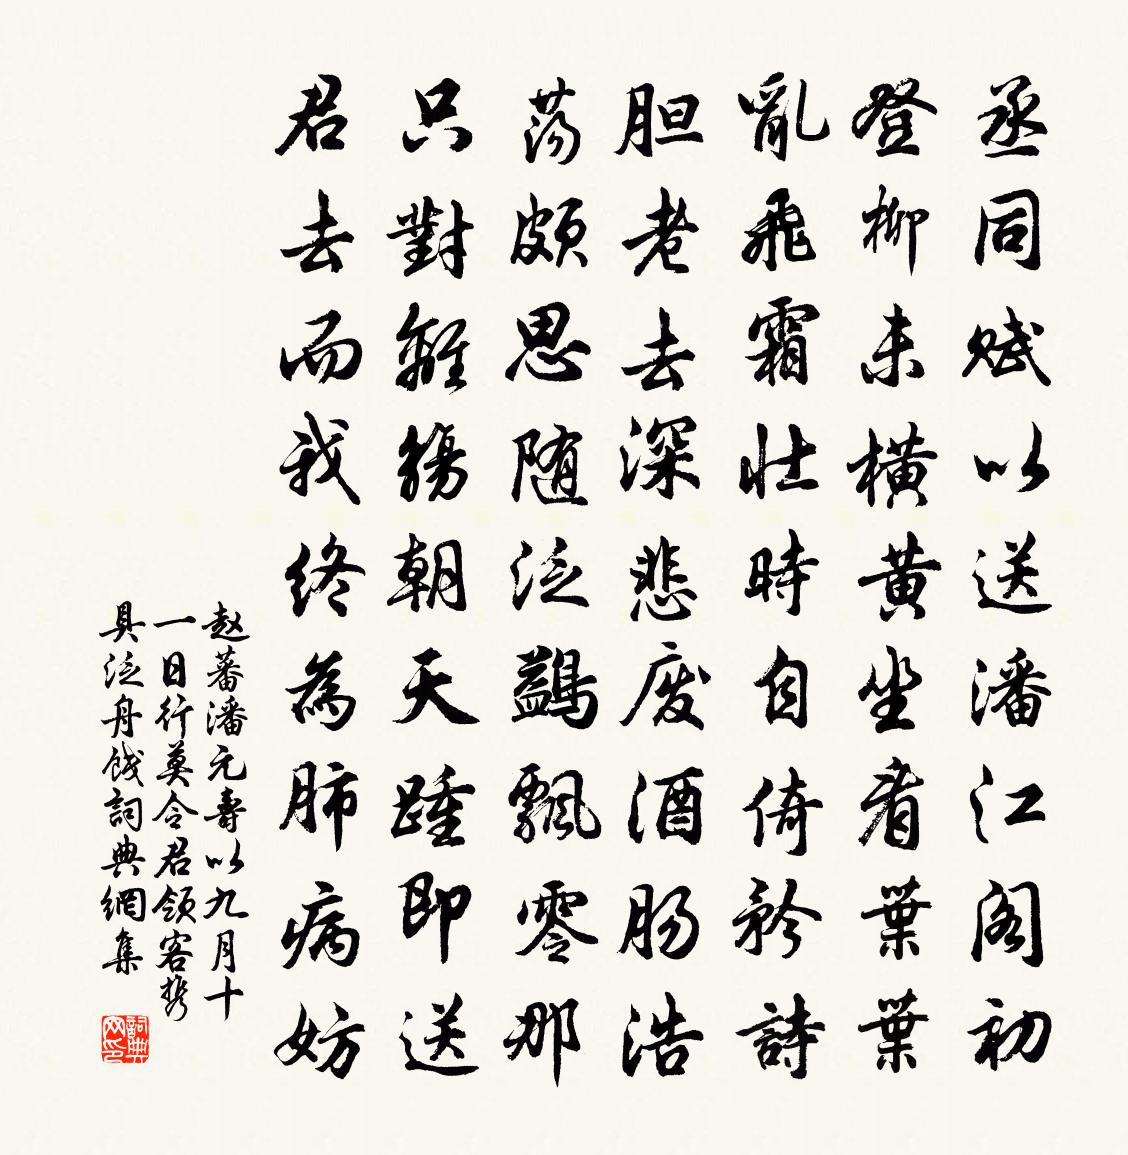 丞同赋以送潘江阁初
登柳未横黄坐看葉葉
亂飛霜壮時自倚矜詩
胆老去深悲废酒肠浩
荡頗思随泛鷁飄零那
只對離觴朝天踵即送
君去而我终為肺病妨
赵蕃潘元壽以九月十
一日行莫令君领客携
具泛舟餞詞典網集
詞典